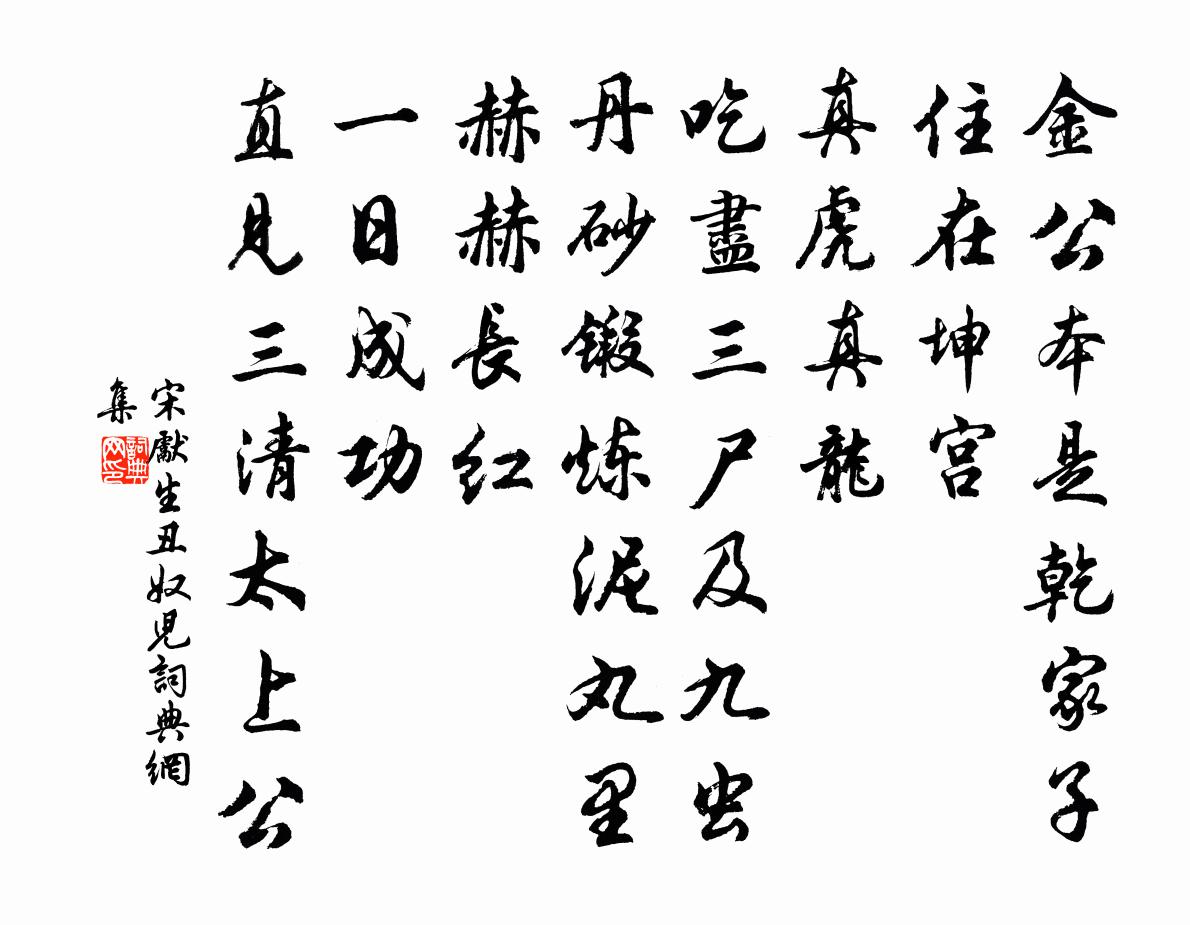 金公本是乾家子
住在坤宫
真虎真龍
吃盡三尸及九虫
丹砂鍛炼泥丸里
赫赫長红
一日成功
直見三清太上公
宋獻生丑奴児詞典網
集
詞典網印